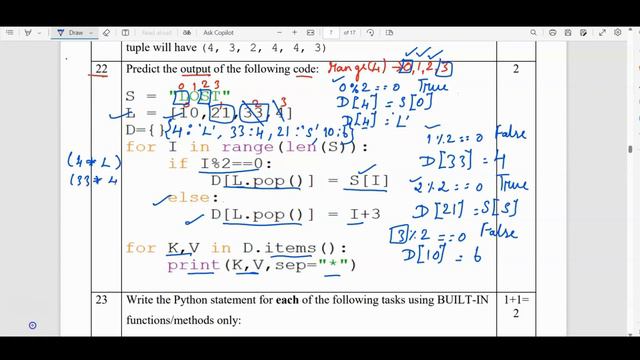 Draw
7
of 17
Ask Copilot
tuple will have (4, 3, 2, 4, 4, 3)
22 Predict the output of the following code: Range(4) → 0, 1, 2, 3 2
0 1 2 3
S = "LOST" 0%2==0 True
D[4] = S[0]
0 1 2 3
L = [10,21,33,4] D[4]='L'
D={} {4:'L', 33:4, 21:'S', 10:6}
1%2==0 False
for I in range(len(S)):
(4*L) if I%2==0: D[33] = 4
(33*4 D[L.pop()] = S[I] 2%2==0 True
else: D[21] = S[S]
D[L.pop()] = I+3 3%2==0 False
for K,V in D.items(): D[10] = 6
print(K,V,sep="*")
23 Write the Python statement for each of the following tasks using BUILT-IN 1+1=
functions/methods only: 2